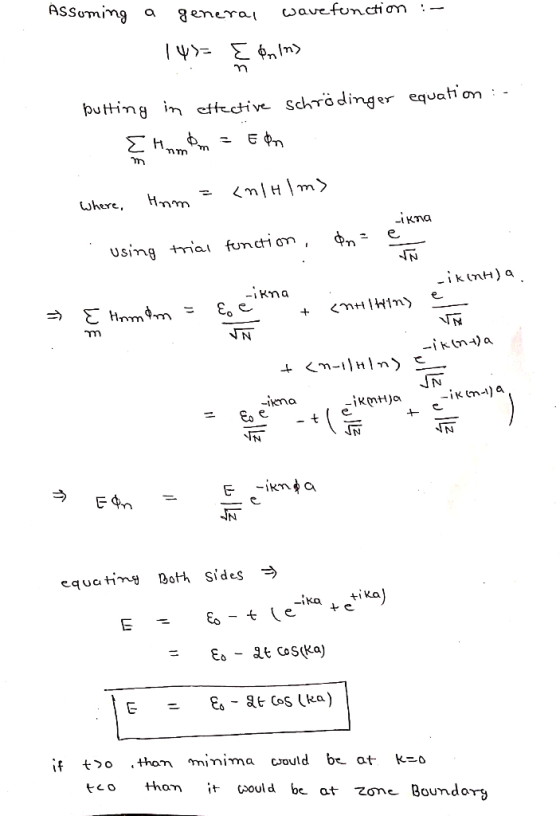 Assuming a general wavefunction :-
|ψ⟩ = Σ_n ϕ_n |n⟩
putting in effective schrödinger equation :-
Σ_m H_nm ϕ_m = E ϕ_n
where, H_nm = <n|H|m>
using trial function, ϕ_n = e^{-ikna}/√N
⇒ Σ_m H_nm ϕ_m = ε_0 e^{-ikna}/√N + <n+1|H|n> e^{-ik(n+1)a}/√N
+ <n-1|H|n> e^{-ik(n-1)a}/√N
= ε_0 e^{-ikna}/√N - t ( e^{-ik(n+1)a}/√N + e^{-ik(n-1)a}/√N )
⇒ E ϕ_n = E/√N e^{-ikna}
equating Both sides ⇒
E = ε_0 - t (e^{-ika} + e^{+ika})
= ε_0 - 2t cos(ka)
E = ε_0 - 2t cos(ka)
if t>0 , than minima would be at k=0
t<0 than it would be at zone Boundary